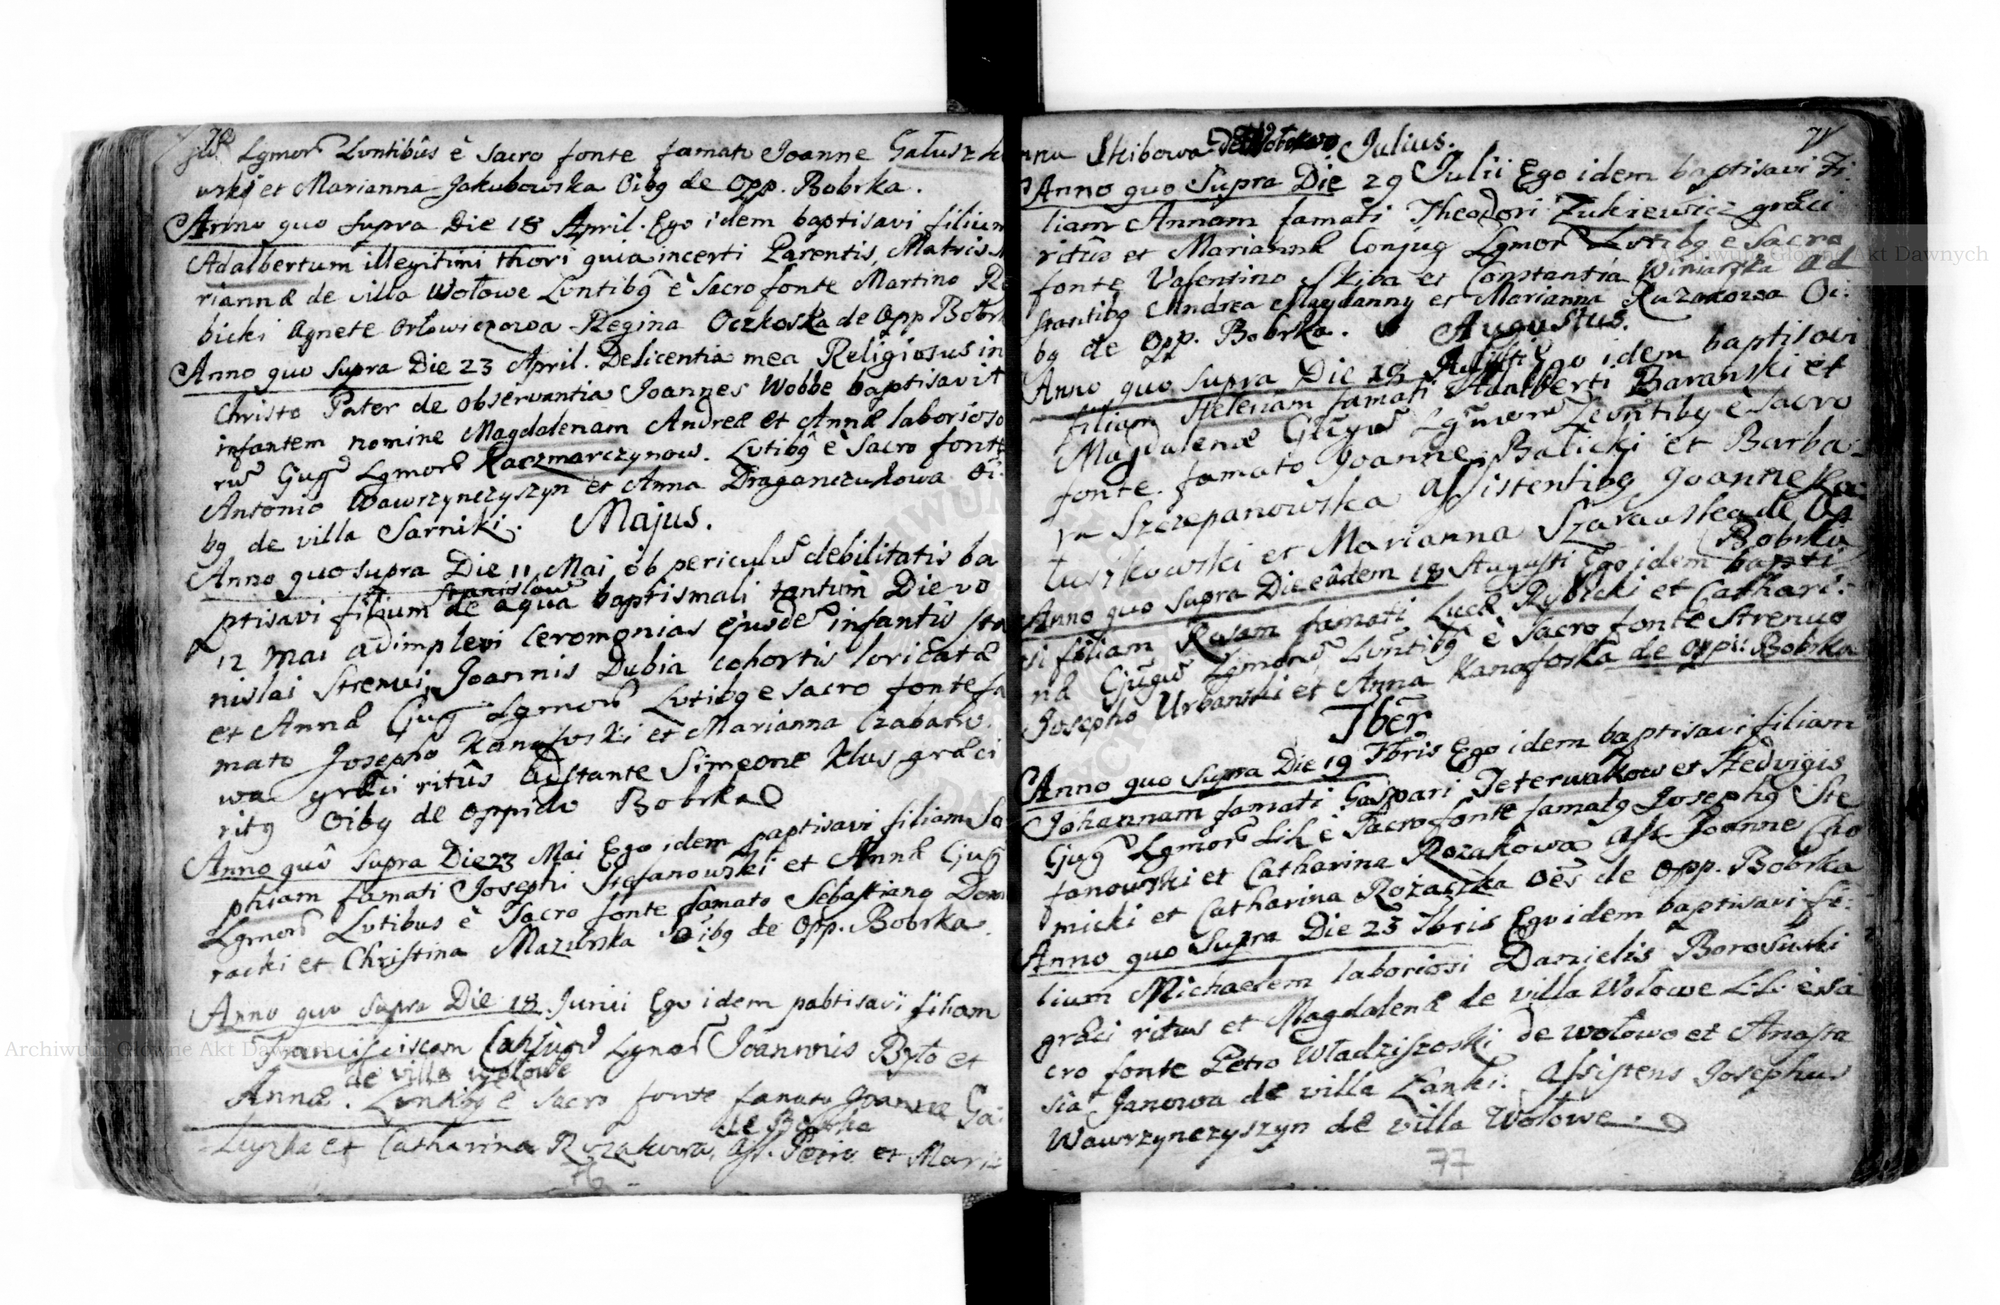 70
Lgmorũ Lvntibûs è Sacro fonte famato Joanne Gałuszko
wski et Marianna Jakubowska Oibg de Opp. Bobrka.
Anno quo supra Die 18 April. Ego idem baptisavi filium
Adalbertum illegitimi thori quia incerti Parentis, Matris Ma
riannæ de villa Wołowe Lvntibg è Sacro fonte Martino Ro
bicki Agnete Orłowiczowa Regina Oczkoska de Opp Bobrk
Anno quo supra Die 23 April. De licentia mea Religiosus in
Christo Pater de observantia Joannes Wobbe baptisavit
infantem nomine Magdalenam Andreæ et Annæ laborioso
rũ Gjug Lgmorũ Kaczmarczynow. Lvtibg è Sacro fonte
Antonio Wawrzynczyszyn et Anna Draganczukowa Oi:
bg de villa Sarniki.
Majus.
Anno quo supra Die 11 Mai ob periculũ debilitatis ba
ptisavi filium Stanislaũ de aqua baptismali tantum Die vo
12 Mai adimplevi ceremonias ejusdẽ infantis Sta
nislai Strenui Joannis Dubia cohortis loricatæ
et Annæ Gjug Lgmorũ Lvtibg e Sacro fonte fa
mato Josepho Kanafoski et Marianna Czabano
wa græci ritûs Adstante Simeone Klus græci
ritg Oibg de Oppido Bobrka
Anno quô supra Die 23 Mai Ego idem paptisavi filiam So
phiam famati Josephi Stefanowski et Annæ Gjug
Lgmorũ Lvtibus è Sacro fonte famato Sebastiano Dom
racki et Christina Mazurska Oibg de Opp. Bobrka.
Anno quo supra Die 18 Junii Ego idem pabtisavi filiam
Franciscam Conjugũ Lgmorũ Joannis Byto et
Annæ. de villa Wołowe Lvntibg è Sacro fonte famato Joanne Ga:
Łuszka et Catharina Rozakowa, de Bobrka Ass. Petro et Mari
76
71
nna Skibowa de Wołowe
Julius.
Anno quo Supra Die 29 Julii Ego idem baptisavi Fi:
liam Annam famati Theodori Zukiewicz græci
ritûs et Mariannæ Conjug Lgmorũ Lvtibg e Sacro
fonte Valentino Skiba et Constantia Winiarska ad
stantibg Andrea Magdanny et Marianna Ruzakowa Oi:
bg de Opp. Bobrka.
Augustus.
Anno quo Supra Die 18 Augusti Ego idem baptisavi
filiam Helenam famati Adalberti Baranski et
Magdalenæ Gjug Lgmorũ Levntibg è Sacro
fonte famato Joanne Balicki et Barba
ra Szczepanowska assistentibg Joanne Ga
łuszkowski et Marianna Szarawska de Op
Bobrka
Anno quo Supra Die eâdem 18 Augusti Ego idem bapti
si filiam Rosam famati Lucæ Rybicki et Cathari:
næ Gjugũ Lgmorũ Lvntibg è Sacro fonte Strenuo
Josepho Urbanski et Anna Kanafoska de Opp: Bobrka
7bër
Anno quo Supra Die 19 7bris Ego idem baptisavi filiam
Johannam famati Gaspari Jeterwakow et Hedvigis
Gjug Lgmorũ Li: è Sacro fonte famatg Josephg Ste
fanowski et Catharina Rozakowa Ass: Joanne Cho
micki et Catharina Rożaczka Oẽs de Opp. Bobrka
Anno quo Supra Die 23 7bris Ego idem baptisavi fi:
lium Michaelem laboriosi Danielis Borosuski
græci ritus et Magdalenæ de villa Wołowe L:L: è Sa
cro fonte Petro Władziszoski de Wołowo et Anasta
sia Janowa de villa Łanki. Assistens Josephus
Wawrzynczyszyn de villa Wołowe.
77
Archiwum Główne Akt Dawnych
Archiwum Główne Akt Dawnych